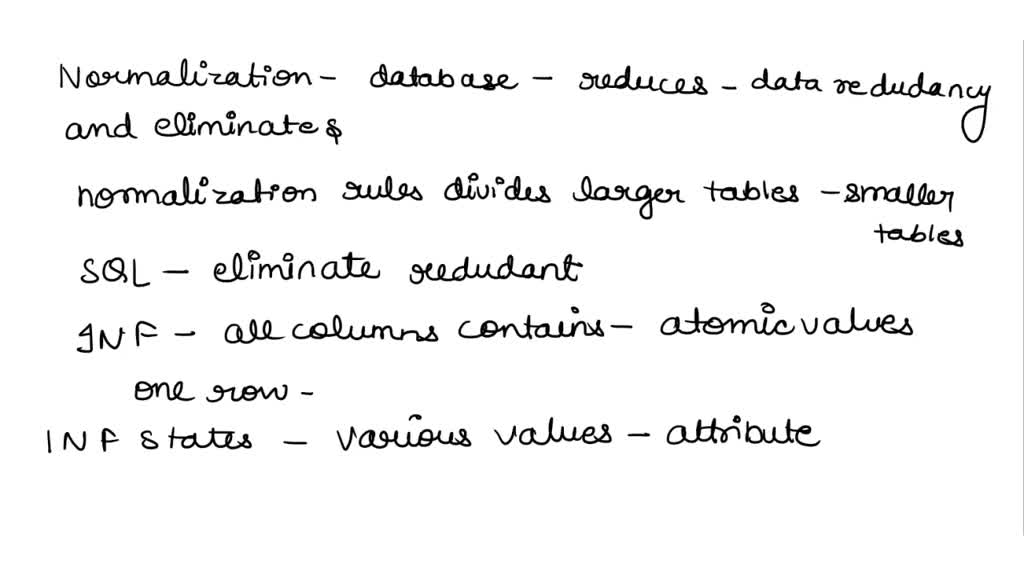 Normalization - database - reduces - data redudancy
and eliminates
normalization rules divides larger tables - smaller
tables
SQL - eliminate redudant
1NF - all columns contains - atomic values
one row -
1NF states - various values - attribute